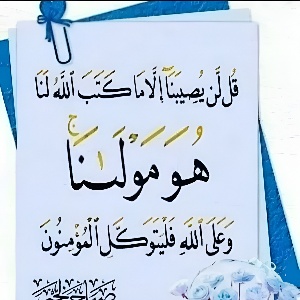 قُل لَّن يُصِيبَنَآ إِلَّا مَا كَتَبَ ٱللَّهُ لَنَا
هُوَ مَوْلَىٰنَا
وَعَلَى ٱللَّهِ فَلْيَتَوَكَّلِ ٱلْمُؤْمِنُونَ